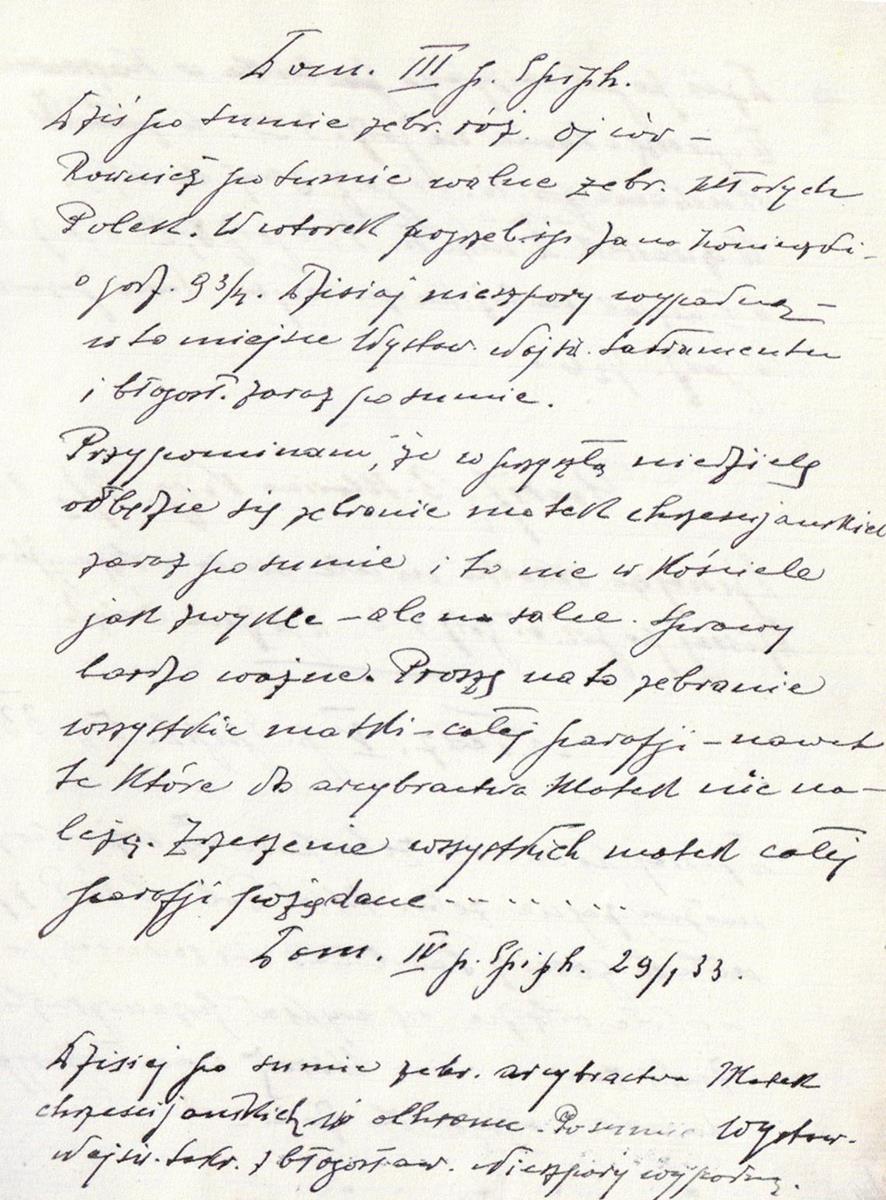 Dom. III p. Epiph.
Dziś po sumie zebr. róż. ojców –
Rownież po sumie walne zebr. Młodych
Polek. W wtorek pogrzeb śp. Jana
o godz. 9 3/4. Dzisiaj nieszpory wypadną –
w to miejsce Wystaw. Najśw. Sakramentu
i błogosł. zaraz po sumie.
Przypominam, że w przyszłą niedzielę
odbędzie się zebranie matek chrzescijanskich
zaraz po sumie i to nie w Kościele
jak zwykle – ale na salce. Sprawy
bardzo ważne. Proszę na to zebranie
wszystkie matki – całej parafji – nawet
te które do arcybractwa Matek nie na–
leżą. Zrzeszenie wszystkich matek całej
parafji pożądane . . . . . . . .
Dom. IV p. Epiph. 29/1 33.
Dzisiej po sumie zebr. arcybractwa Matek
chrzescijanskich w ochronce. Po sumie Wystaw.
Najśw. Sakr. z błogosław. Nieszpory wypadną.